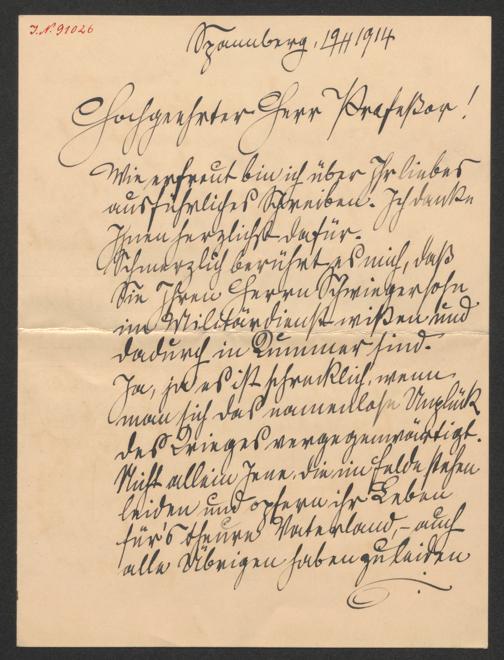 J.N. 91026
Spannberg, 19/11 1914
Hochgeehrter Herr Profeßor!
Wie erfreut bin ich über Ihr liebes
ausführliches Schreiben. Ich danke
Ihnen herzlichst dafür.
Schmerzlich berührt es mich, daß
Sie Ihren Herrn Schwiegersohn
im Militärdienst wißen und
dadurch in Kummer sind.
Ja, ja es ist schrecklich, wenn
man sich das namenlose Unglück
des Krieges vergegenwärtigt.
Nicht allein Jene, die im Felde stehen
leiden und opfern ihr Leben
für's theure Vaterland, – auch
alle Übrigen haben zu leiden